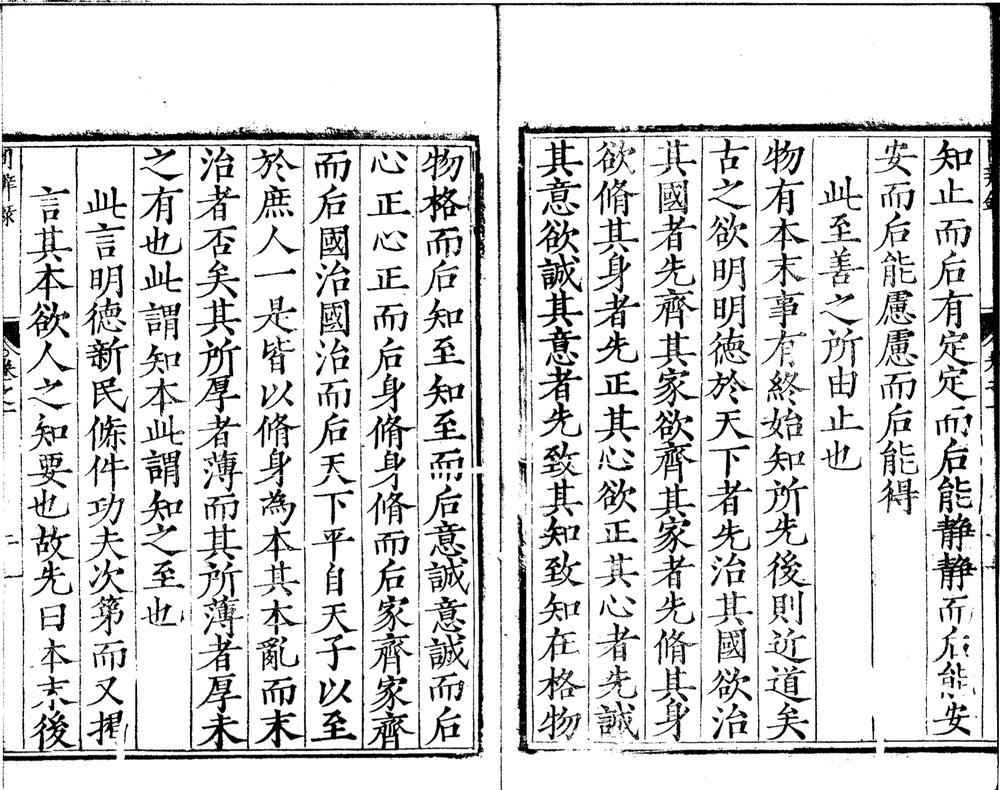 知止而后有定定而后能静静而后能安
安而后能慮慮而后能得
此至善之所由止也
物有本末事有終始知所先後則近道矣
古之欲明明徳於天下者先治其國欲治
其國者先齊其家欲齊其家者先脩其身
欲脩其身者先正其心欲正其心者先誠
其意欲誠其意者先致其知致知在格物
物格而后知至知至而后意誠意誠而后
心正心正而后身脩身脩而后家齊家齊
而后國治國治而后天下平自天子以至
於庶人一是皆以脩身為本其本亂而末
治者否矣其所厚者薄而其所薄者厚未
之有也此謂知本此謂知之至也
此言明德新民條件功夫次第而又揭
言其本欲人之知要也故先曰本末後